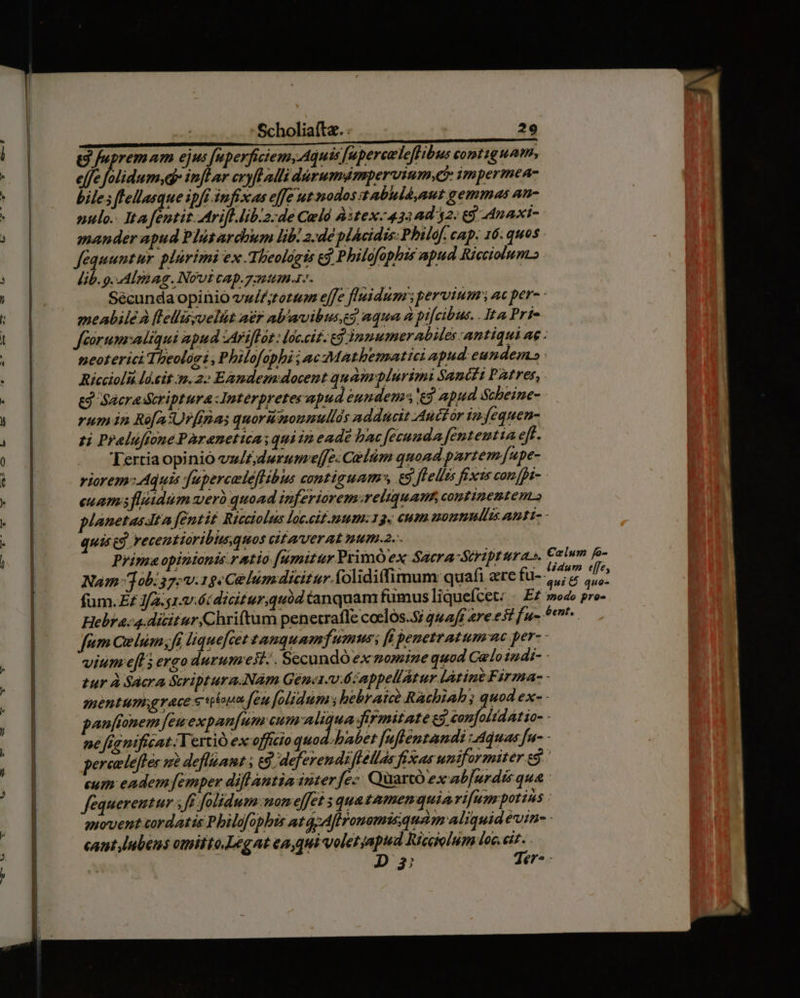 Scholiaſtæ. 29
& ſupremam ejus ſuperficiem, Aquis ſupercæleſtibus contiguam,
eſſe ſolidum, & inſtar cryſtalli durum, impervium, & impermea-
bile; ſtellasque ipſi infixas eſſe ut nodos tabulâ, aut gemmas an-
nulo. Ita ſentit Ariſt. lib. 2. de Cælo à tex. 43. ad 52. & Anaxi-
mander apud Plutarchum lib. 2. de plácidis Philoſ. cap. 16. quos
ſequuntur plurimi ex Theologis & Philoſophis apud Ricciolum
lib. 9. Almag. Novi cap. 7. num. 1.
Secunda opinio vult, totum eſſe fluidum, pervium, ac per-
meabile à ſtellis, velut aër ab avibus, & aqua à piſcibus. Ita Pri-
ſcorum aliqui apud Ariſtot: loc. cit. & innumerabiles antiqui ac
neoterici Theologi, Philoſophi, ac Mathematici apud eundem
Ricciolũ lo. cit. n. 2. Eandem docent quàm plurimi Sancti Patres,
& Sacræ Scripturæ Interpretes apud eundem, & apud Scheine-
rum in Roſa Urſina; quorũ nonnullos adducit Auctor in ſequen-
ti Præluſione Parænetica, qui in eadē hac ſecunda ſententia eſt.
Tertia opinio vult, durum eſſe Cælum quoad partem ſupe-
riorem Aquis ſupercæleſtibus contiguam, & ſtellis fixis conſpi-
cuam; fluidum verò quoad inferiorem reliquam, continentem
planetas. Ita ſentit Ricciolus loc. cit. num. 13. cum nonnullis anti-
quis & recentioribus, quos citaverat num. 2.
Prima opinionis ratio ſumitur Primò ex Sacra Scriptura.
Nam Job. 37. v. 18. Cælum dicitur ſolidiſſimum quaſi ære fu-
ſum. Et Iſa. 51. v. 6. dicitur, quòd tanquam fumus liqueſcet: Et
Hebra. 4. dicitur, Chriſtum penetraſſe cœlos. Si quaſi ære eſt fu-
ſum Cælum, ſi liqueſcet tanquam fumus; ſi penetratum ac per-
vium eſt; ergo durum eſt. Secundò ex nomine quod Cælo indi-
tur à Sacra Scriptura. Nam Gen. 1. v. 6. appellatur latinè Firma-
mentum, græcè ςερέωμα ſeu ſolidum, hebraicè Rachiah; quod ex-
panſionem ſeu expanſum cum aliqua firmitate & conſolidatio-
ne ſignificat. Tertiò ex officio quod habet ſuſtentandi Aquas ſu-
percæleſtes nè defluant; & deferendi ſtellas fixas uniformiter &
cum eadem ſemper diſtantia inter ſe. Quartò ex abſurdis quæ
ſequerentur, ſi ſolidum non eſſet; quæ tamen quia riſum potiùs
movent cordatis Philoſophis atq; Aſtronomis, quàm aliquid evin-
cant, lubens omitto. Legat ea, qui volet, apud Ricciolum loc. cit.
Cælum ſo-
lidum eſſe,
qui & quo-
modo pro-
bent.
D 3 Ter-